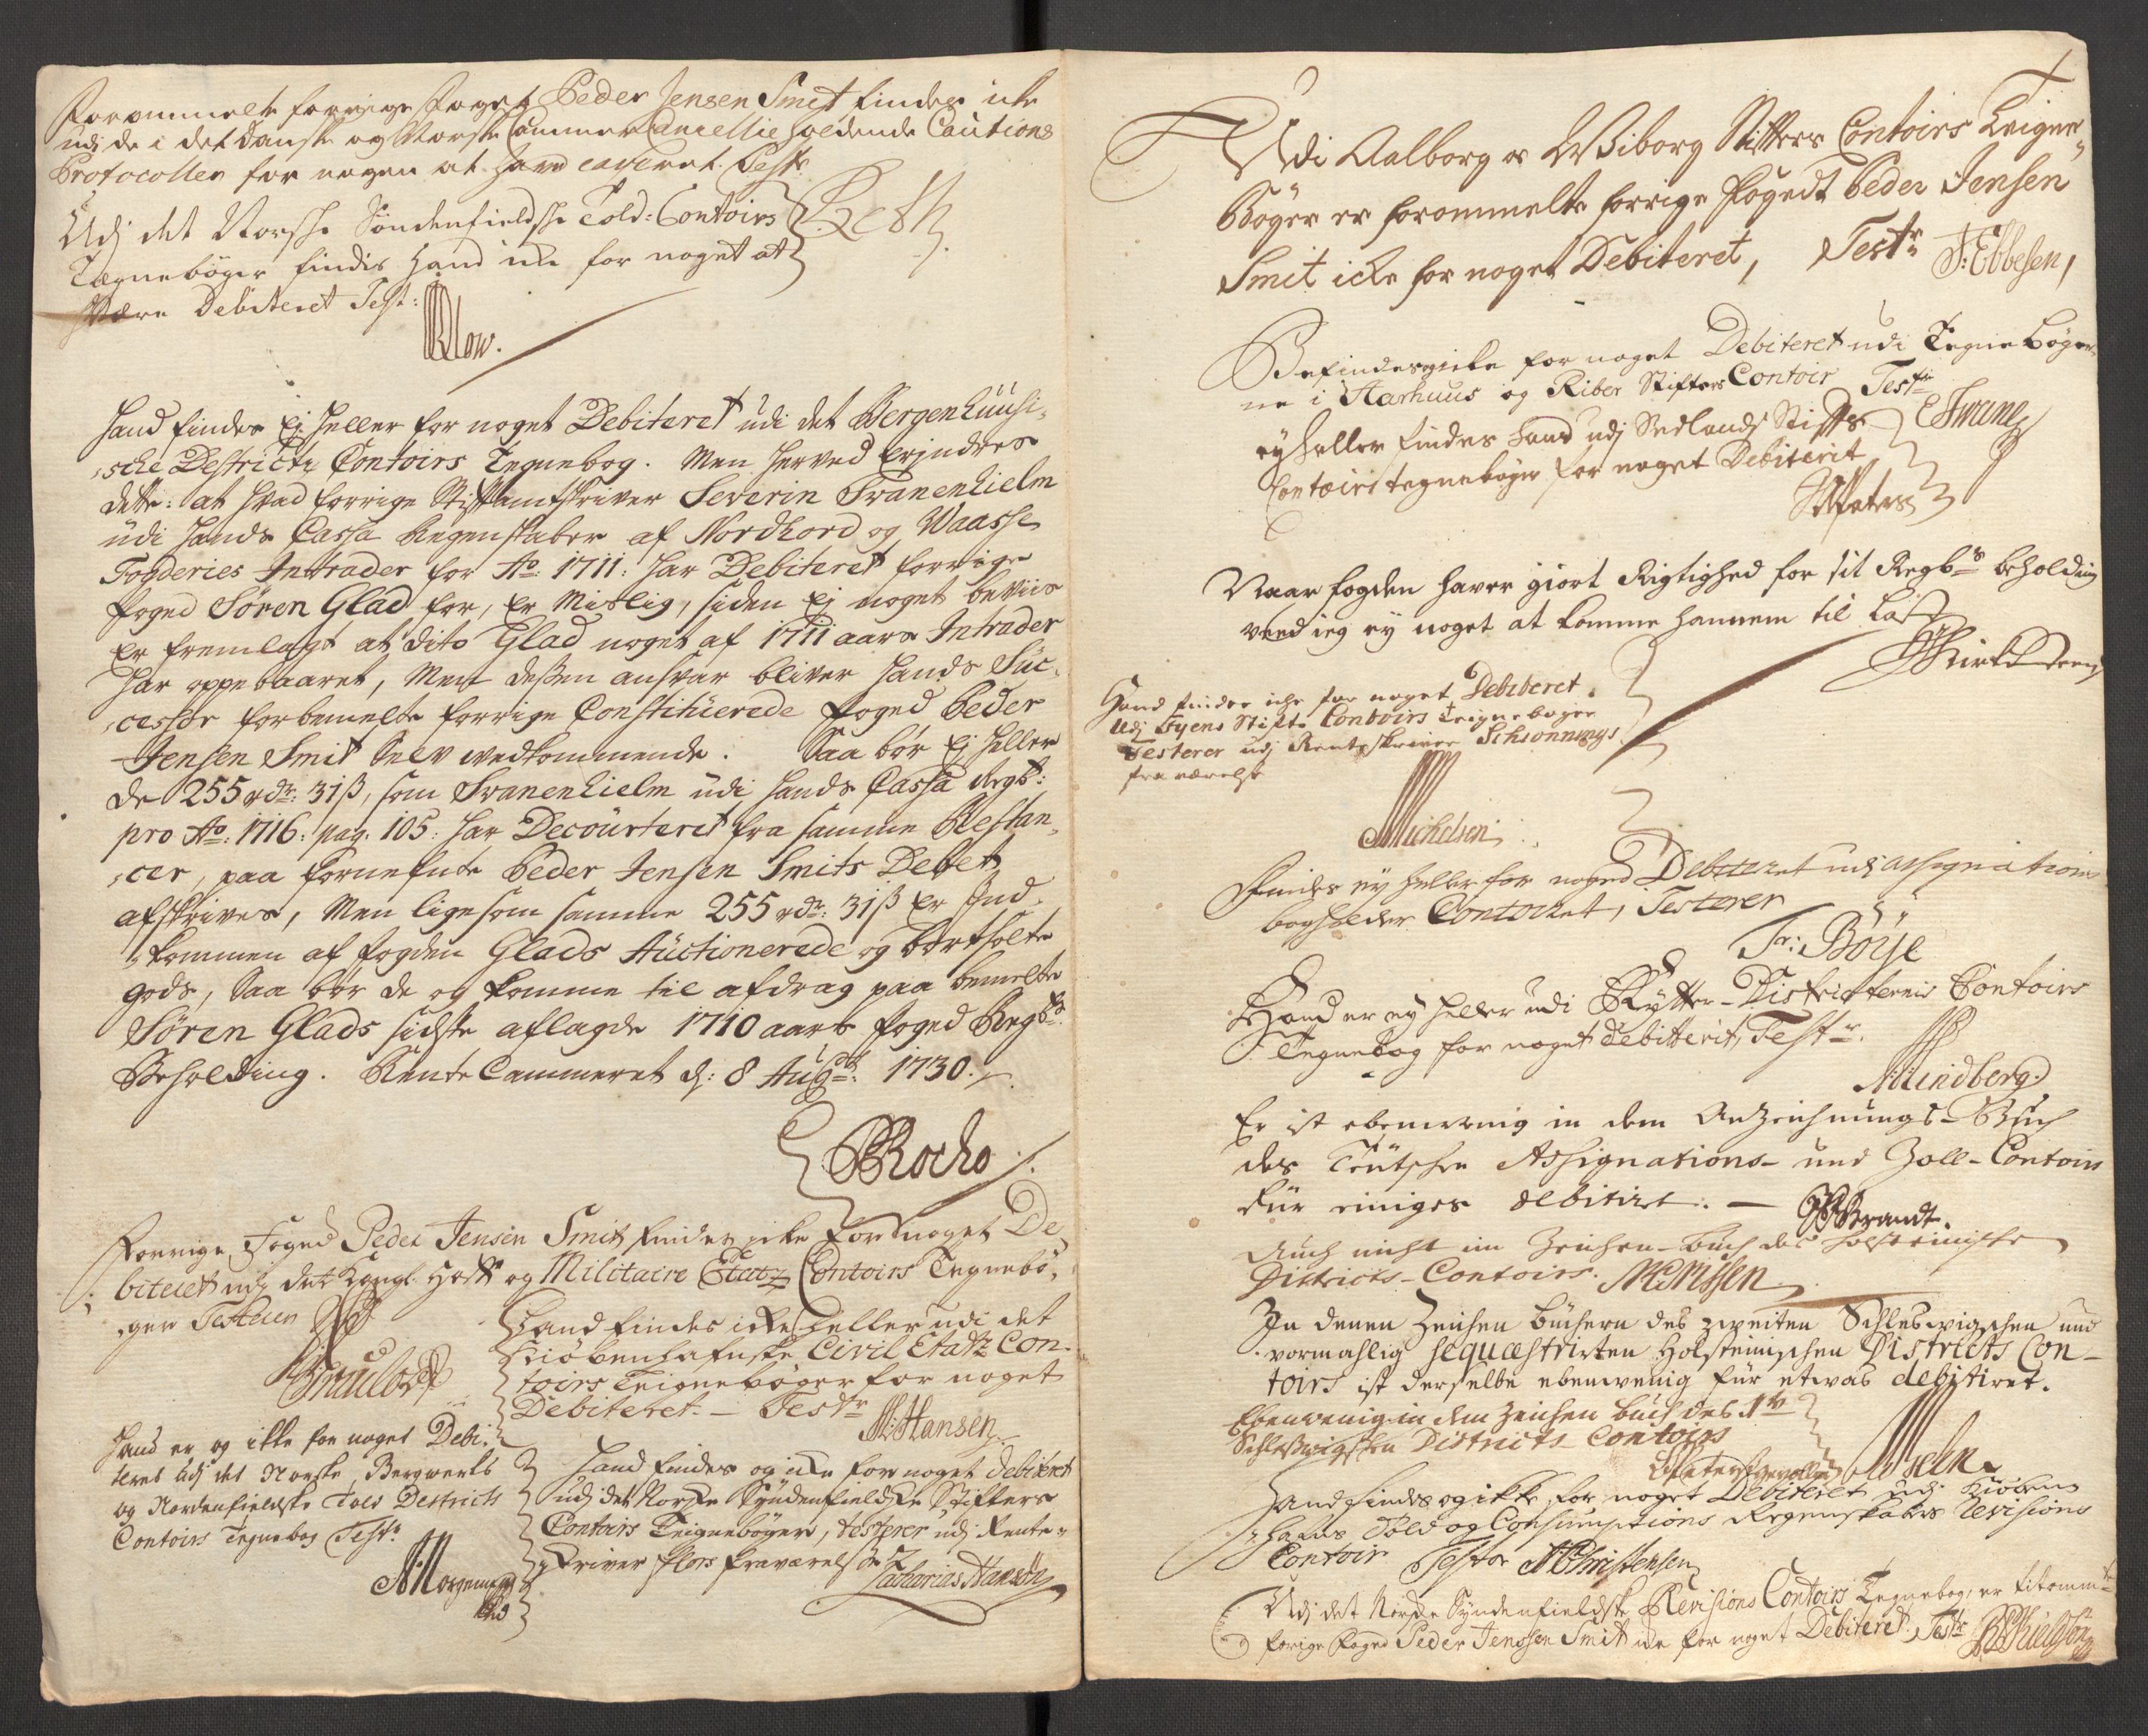 Forommelte forrige Foget Peder Jensen Smit findes icke
udi de i det Danske og Norske Cammer Cancellie holdende Cautions
Protocoller for nogen at have caveret. Testr
Udj det Norske Søndenfieldske Told-Contoirs
Tegnebøger findis hand icke for noget at
Være Debiteret Test:
Hand findes Ej heller for noget Debiteret udi det Bergenhuusi-
sche Destricts Contoirs Tegnebog. Men herved Erindres
dette: at hvad forrige Stiftamtskriver Severin Svanenhielm
udi hands Cassa Regenskaber af Nordhord og Waasse
Fogderies Intrader for Ao: 1711: har Debiteret forrige
foged Søren Glad for, Er Mislig, siden Ej noget beviis
Er fremlagt at dito Glad noget af 1711 aars Intrader
har oppebaaret, Men dessen ansvar bliver hands Suc-
cessor forbemelte forrige Constituerede foged Peder
Jensen Smit Selv vedkommende. Saa bør Ej heller
de 255 rdr: 31 ß, som Svanenhielm udi hands Cassa Regb:
pro Ao: 1716: pag: 105: har Decourteret fra samme Restan-
cer, paa fornefnte Peder Jensen Smits Debet
afskrives, Men ligesom samme 255 rdr: 31 ß Er Ind-
kommen af fogden Glads Auctionerede og bortsolte
gods, Saa bør de og komme til afdrag paa bemelte
Søren Glads sidste aflagde 1710 aars foged Regbs
Beholding. RenteCammeret d: 8 Augst: 1730.
Rocho
Forrige Foged Peder Jensen Smit findes icke for noget De-
biteret udj det Kongl. Hoff og Militaire Etatz Contoirs Tegnebø-
ger Testerer
Hand findes icke heller udi det
Kiøbenhafnske Civil Etatz Con-
toirs Teignebøger for noget
Debiteret. Testr
Hansen
Hand er og ikke for noget Debi-
teret udj det Norske Bergwerks
og Nordenfieldske Told Districts
Contoirs Tegnebog Testr
Hand findes og icke for noget debiteret
udj det Norske Syndenfieldske Stifters
Contoirs Teignebøger, testerer udj Rente-
skriver Flors fraværelse
Zacharias Hansen
Udi Aalborg os Wiborg Stifters Contoirs Teigne-
Bøger er forommelte forrige foged Peder Jensen
Smit icke for noget Debiteret, Testr
J: Ebbesen
Befindes icke for noget Debiteret udi Tegnebøger-
ne i Aarhuus og Riber Stifters Contoir Testr
ey heller findes hand udj Siellands Stifts
Contoirs tegnebøger for noget Debiterit
Naar fogden haver giort Rigtighed for sit Regbs beholding
veed ieg ey noget at komme hannem til Last
Hand findes icke for noget Debiteret
Udj Fyens Stifts Contoirs Teignebøger
Testerer udj Renteskriver Schionnings
fraværelse
Michelsen
Findes ey heller for noged Debiteret udi Assignations
bogholder Contoiret, Testerer
Fr: Börje
Hand er ey heller udi Rytter-Districternis Contoirs
Tegnebog for noget debitterit, Testr.
Lindberg
Er ist ebenwenig in dem Anzeichnungs-Buch
des Teutschen Assignations- und Zoll-Contoirs
für einiges debitiret. —
Brandt.
Auch nicht im Zeichen-buch des Holsteinischen
Districts-Contoirs. Nissen
In denen Zeichen büchern des zweiten Schleswigschen und
vormahlig sequestrirten Holsteinischen Districts Con-
toirs ist derselbe ebenwenig für etwas debitiret.
Ebenwenig in dem Zeichen buch des 1ten
Schleswigschen Districts-Contoirs
Hand findes og ikke for noget Debiteret udj Kiøben-
hafns Told og Consumptions Regenskabers Revisions
Contoir Testor Christensen
Udj det Norske Syndenfieldske Revisions Contoirs Tegnebog, er titommte
forige Foged Peder Jenssen Smit icke for noget Debiteret, Testr